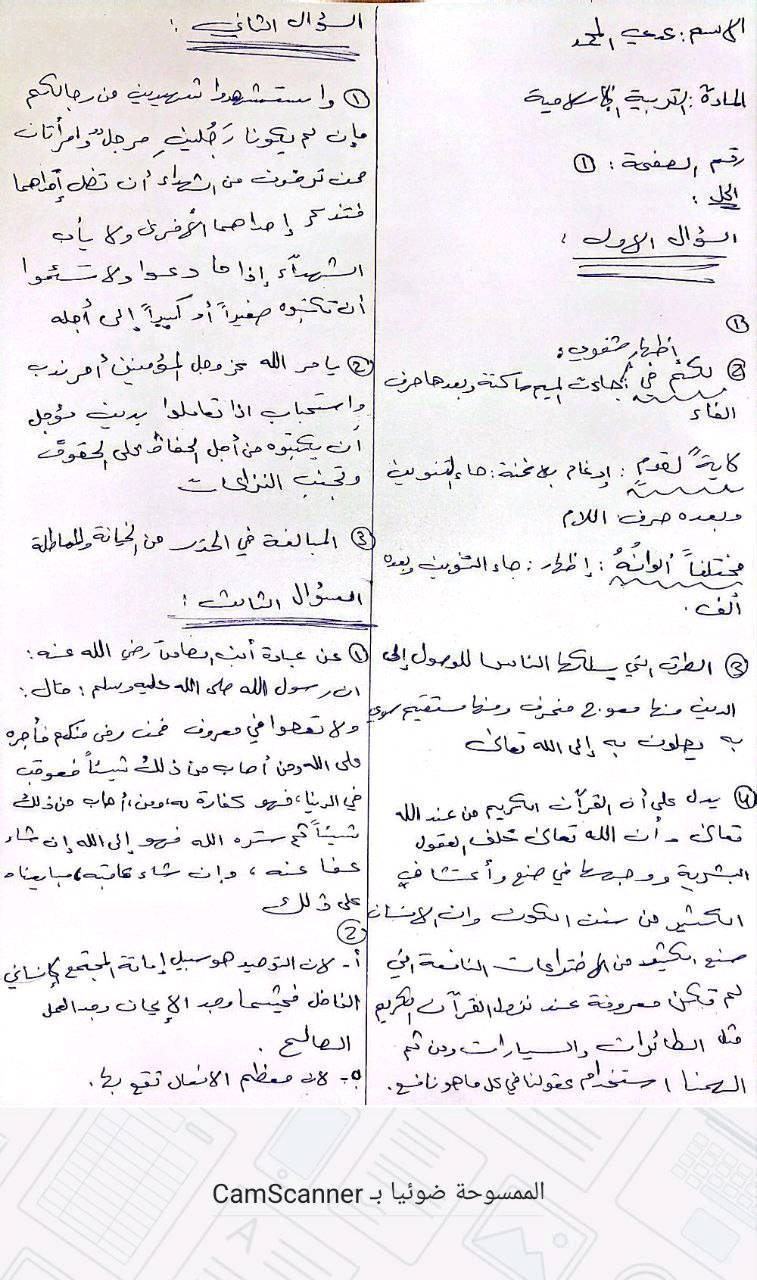 الاسم: عدي المحمد
المادة: التربية الاسلامية
رقم الصفحة: ①
الحل:
السؤال الاول:
①
② إظهار شفوي:
لكم في: جاءت الميم ساكنة وبعدها حرف
الفاء
لآيةً لقوم: إدغام بلا غنة: جاء التنوين
وبعده حرف اللام
مختلفاً ألوانُهُ: إظهار: جاء التنوين وبعده
ألف.
③ الطرق التي يسلكها الناس للوصول إلى
الدين منها معوج منحرف ومنها مستقيم سوي
به يصلون به إلى الله تعالى
④ يدل على أن القرآن الكريم من عند الله
تعالى وأن الله تعالى خلق العقول
البشرية ووجهها في صنع وأكتشاف
الكثير من سنن الكون وان الانسان
صنع الكثير من الاختراعات النافعة التي
لم تكن معروفة عند نزول القرآن الكريم
مثل الطائرات والسيارات ومن ثم
الهمنا استخدام عقولنا في كل ما هو نافع.
السؤال الثاني:
① واستشهدوا شهيدين من رجالكم
فإن لم يكونا رَجُلينِ فرجل وامرأتان
ممن ترضون من الشهداء أن تضل إحداهما
فتذكر إحداهما الأُخرى ولا يأب
الشهدآء إذا ما دعوا ولا تسئموا
أن تكتبوه صغيراً أو كبيراً إلى أجله
② يأمر الله عز وجل المؤمنين أمر ندب
واستحباب اذا تعاملوا بدين مؤجل
أن يكتبوه من أجل الحفاظ على الحقوق
وتجنب النزاعات
③ المبالغة في الحذر من الخيانة والمماطلة
السؤال الثالث:
① عن عبادة أبن الصامت رضي الله عنه:
ان رسول الله صلى الله عليه وسلم: قال:
ولا تعصوا في معروف فمن وفى منكم فأجره
على الله ومن أصاب من ذلك شيئاً فعوقب
في الدنيا، فهو كفارة له، ومن أصاب من ذلك
شيئاً ثم ستره الله فهو إلى الله إن شاء
عفا عنه، وإن شاء عاقبه، فبايعناه
على ذلك
②
أ- لان التوحيد هو سبيل إقامة المجتمع الإنساني
الفاضل فحيثما وجد الإيمان وجد العمل
الصالح.
ب- لان معظم الافعال تقع بها.
الممسوحة ضوئيا بـ CamScanner